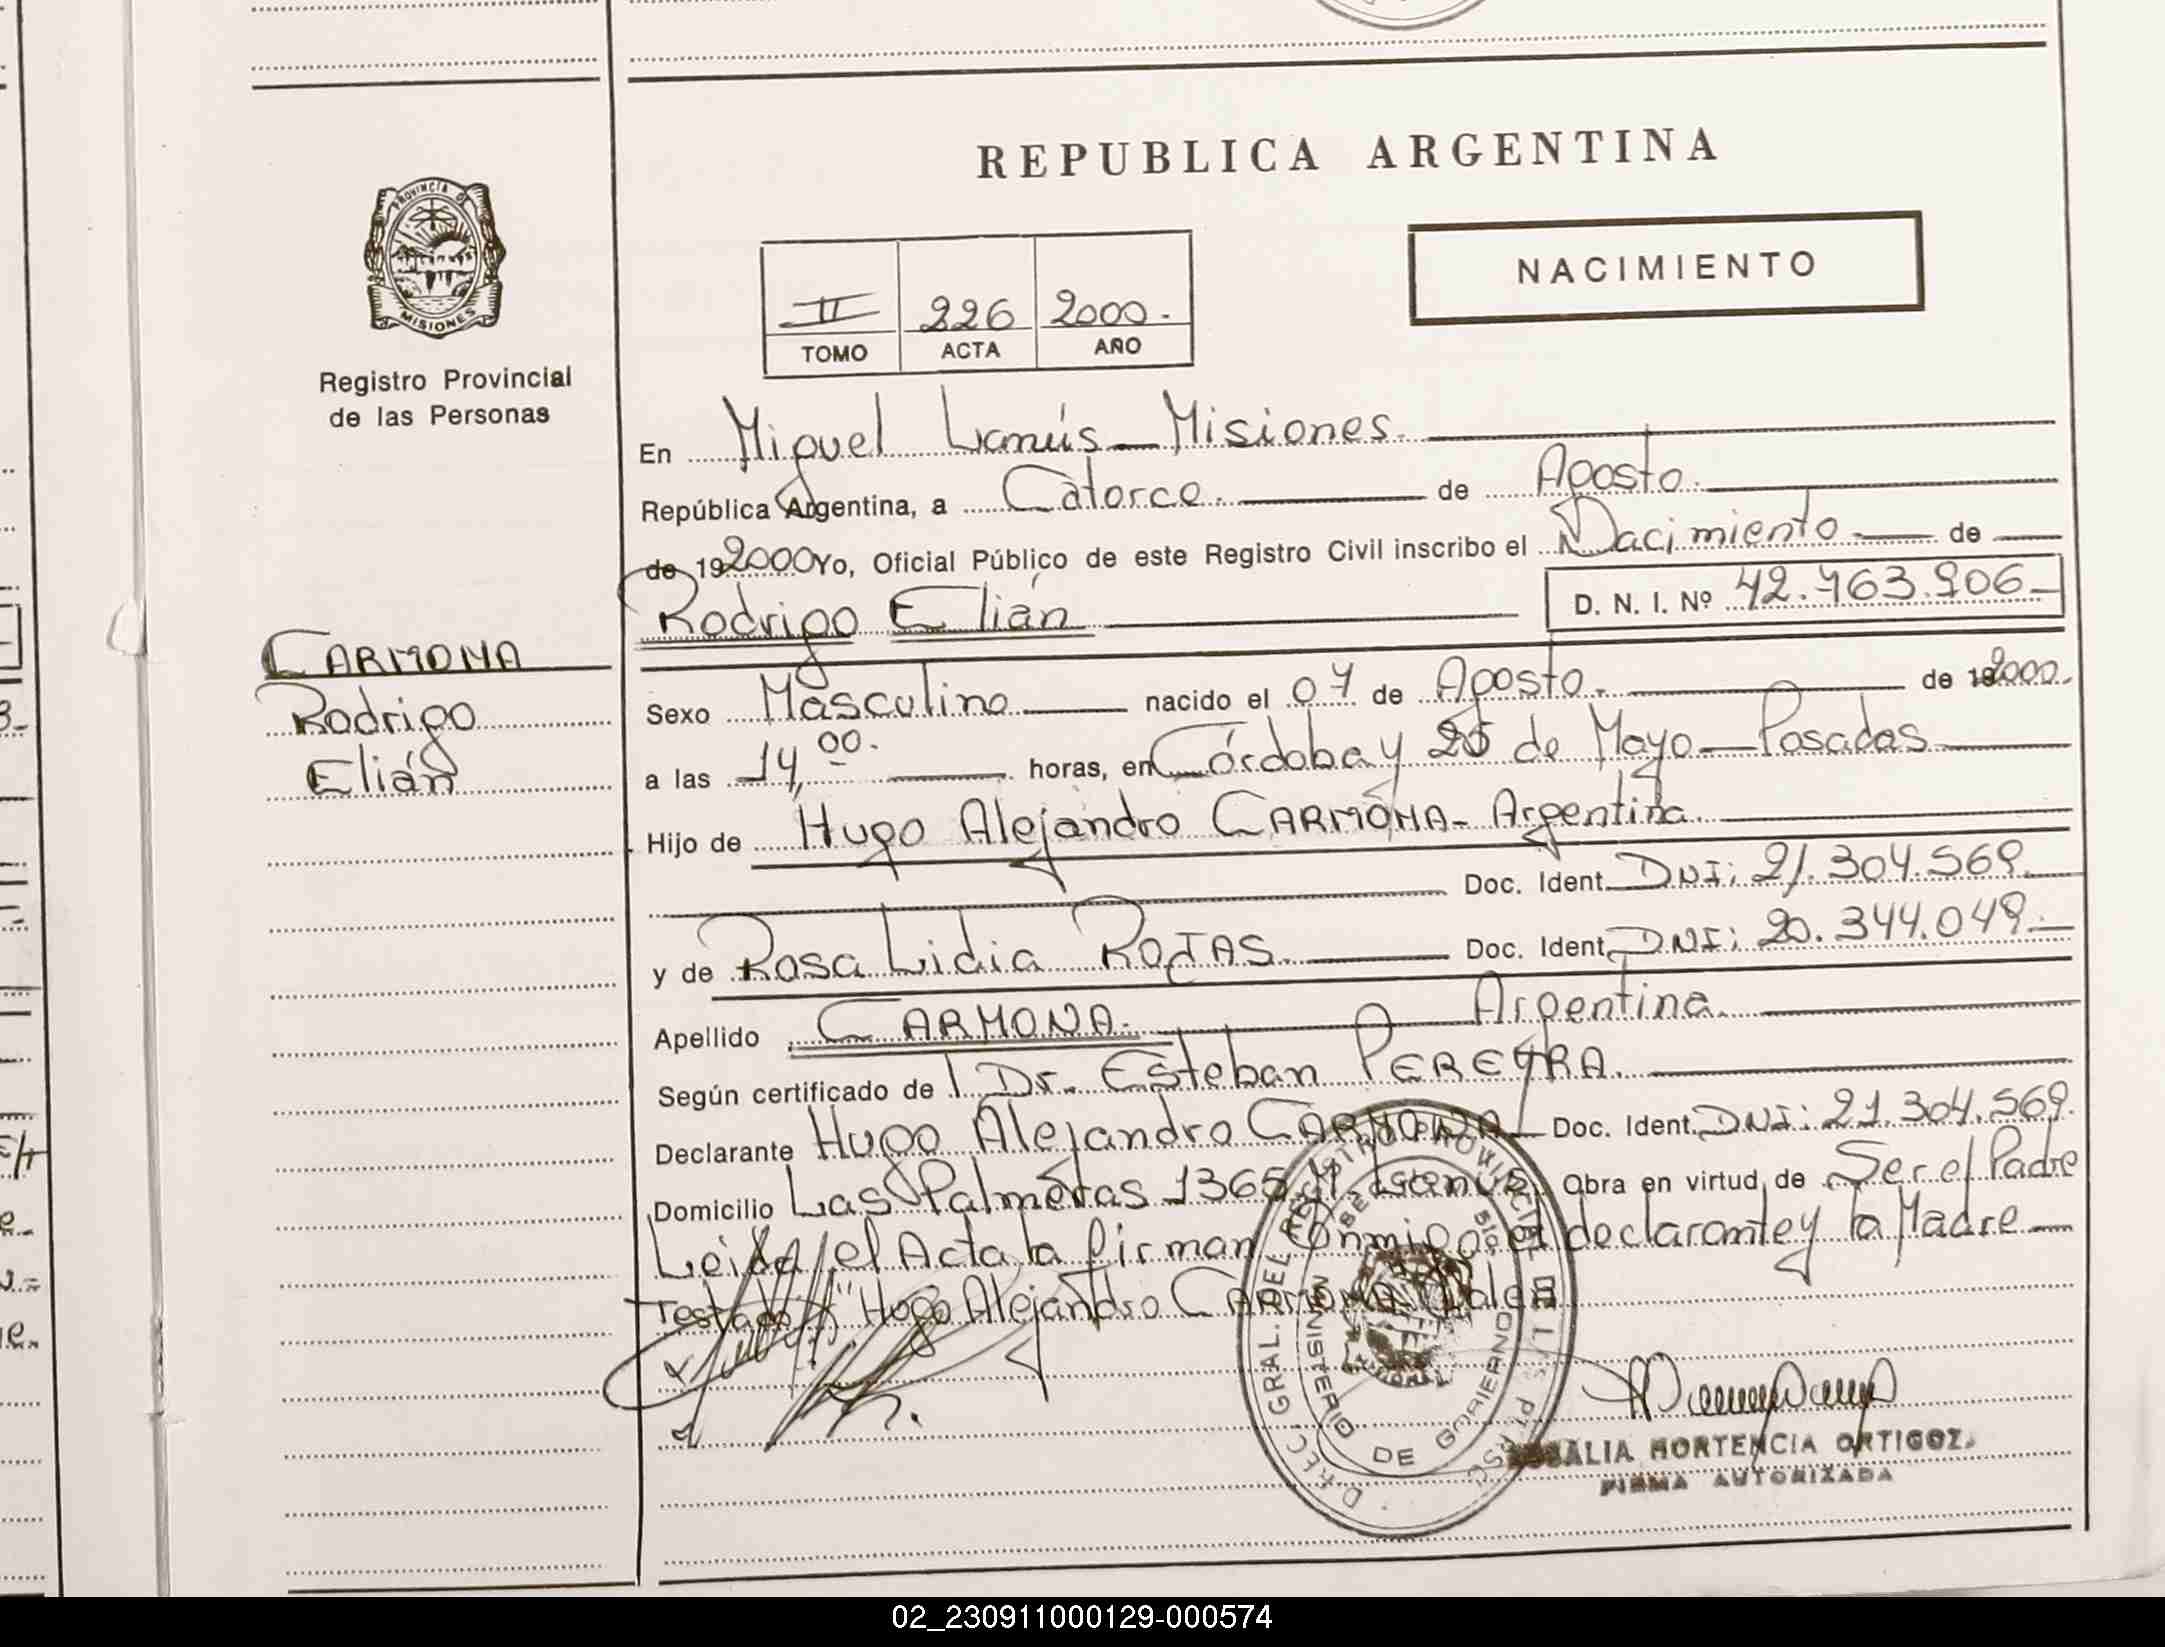 REPUBLICA ARGENTINA
PROVINCIA DE
MISIONES
Registro Provincial
de las Personas
NACIMIENTO
II 226 2000.
TOMO ACTA AÑO
En Miguel Lanús - Misiones.
República Argentina, a Catorce. de Agosto.
de 192000 Yo, Oficial Público de este Registro Civil inscribo el Nacimiento de
Rodrigo Elián D. N. I. Nº 42.763.906
CARMONA
Rodrigo
Elián
Sexo Masculino nacido el 07 de Agosto. de 192000.
a las 14,00. horas, en Córdoba y 25 de Mayo - Posadas
Hijo de Hugo Alejandro CARMONA - Argentina
Doc. Ident. DNI: 21.304.569.
y de Rosa Lidia ROJAS. Doc. Ident. DNI: 20.344.049.
Apellido CARMONA. Argentina.
Según certificado de Dr. Esteban PEREYRA.
Declarante Hugo Alejandro CARMONA Doc. Ident. DNI: 21.304.569.
Domicilio Las Palmeras 1365 M. Lanús Obra en virtud de Ser el Padre
Leída el Acta la firman Conmigo el declarante y la Madre
Testado: "Hugo Alejandro CARMONA" Vale
DIREC. GRAL. DEL REGISTRO PROVINCIAL DE LAS PERS.
MINISTERIO DE GOBIERNO
ROSALIA HORTENCIA ORTIGOZA
FIRMA AUTORIZADA
02_230911000129-000574